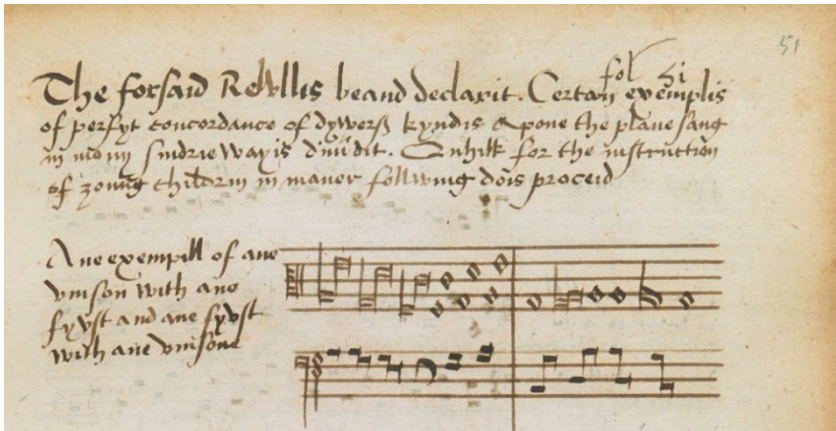 51
fol hi
The forsaid Rewllis beand declarit. Certan exemplis
of perfyt concordance of dywerß kyndis apone the plane sang
in mony sindrie wayis diuidit. Quhilk for the instruction
of ȝoung childrin in maner follwing dois proceid
Ane exempill of ane
vnison with ane
fyvst and ane fyvst
with ane vnisone